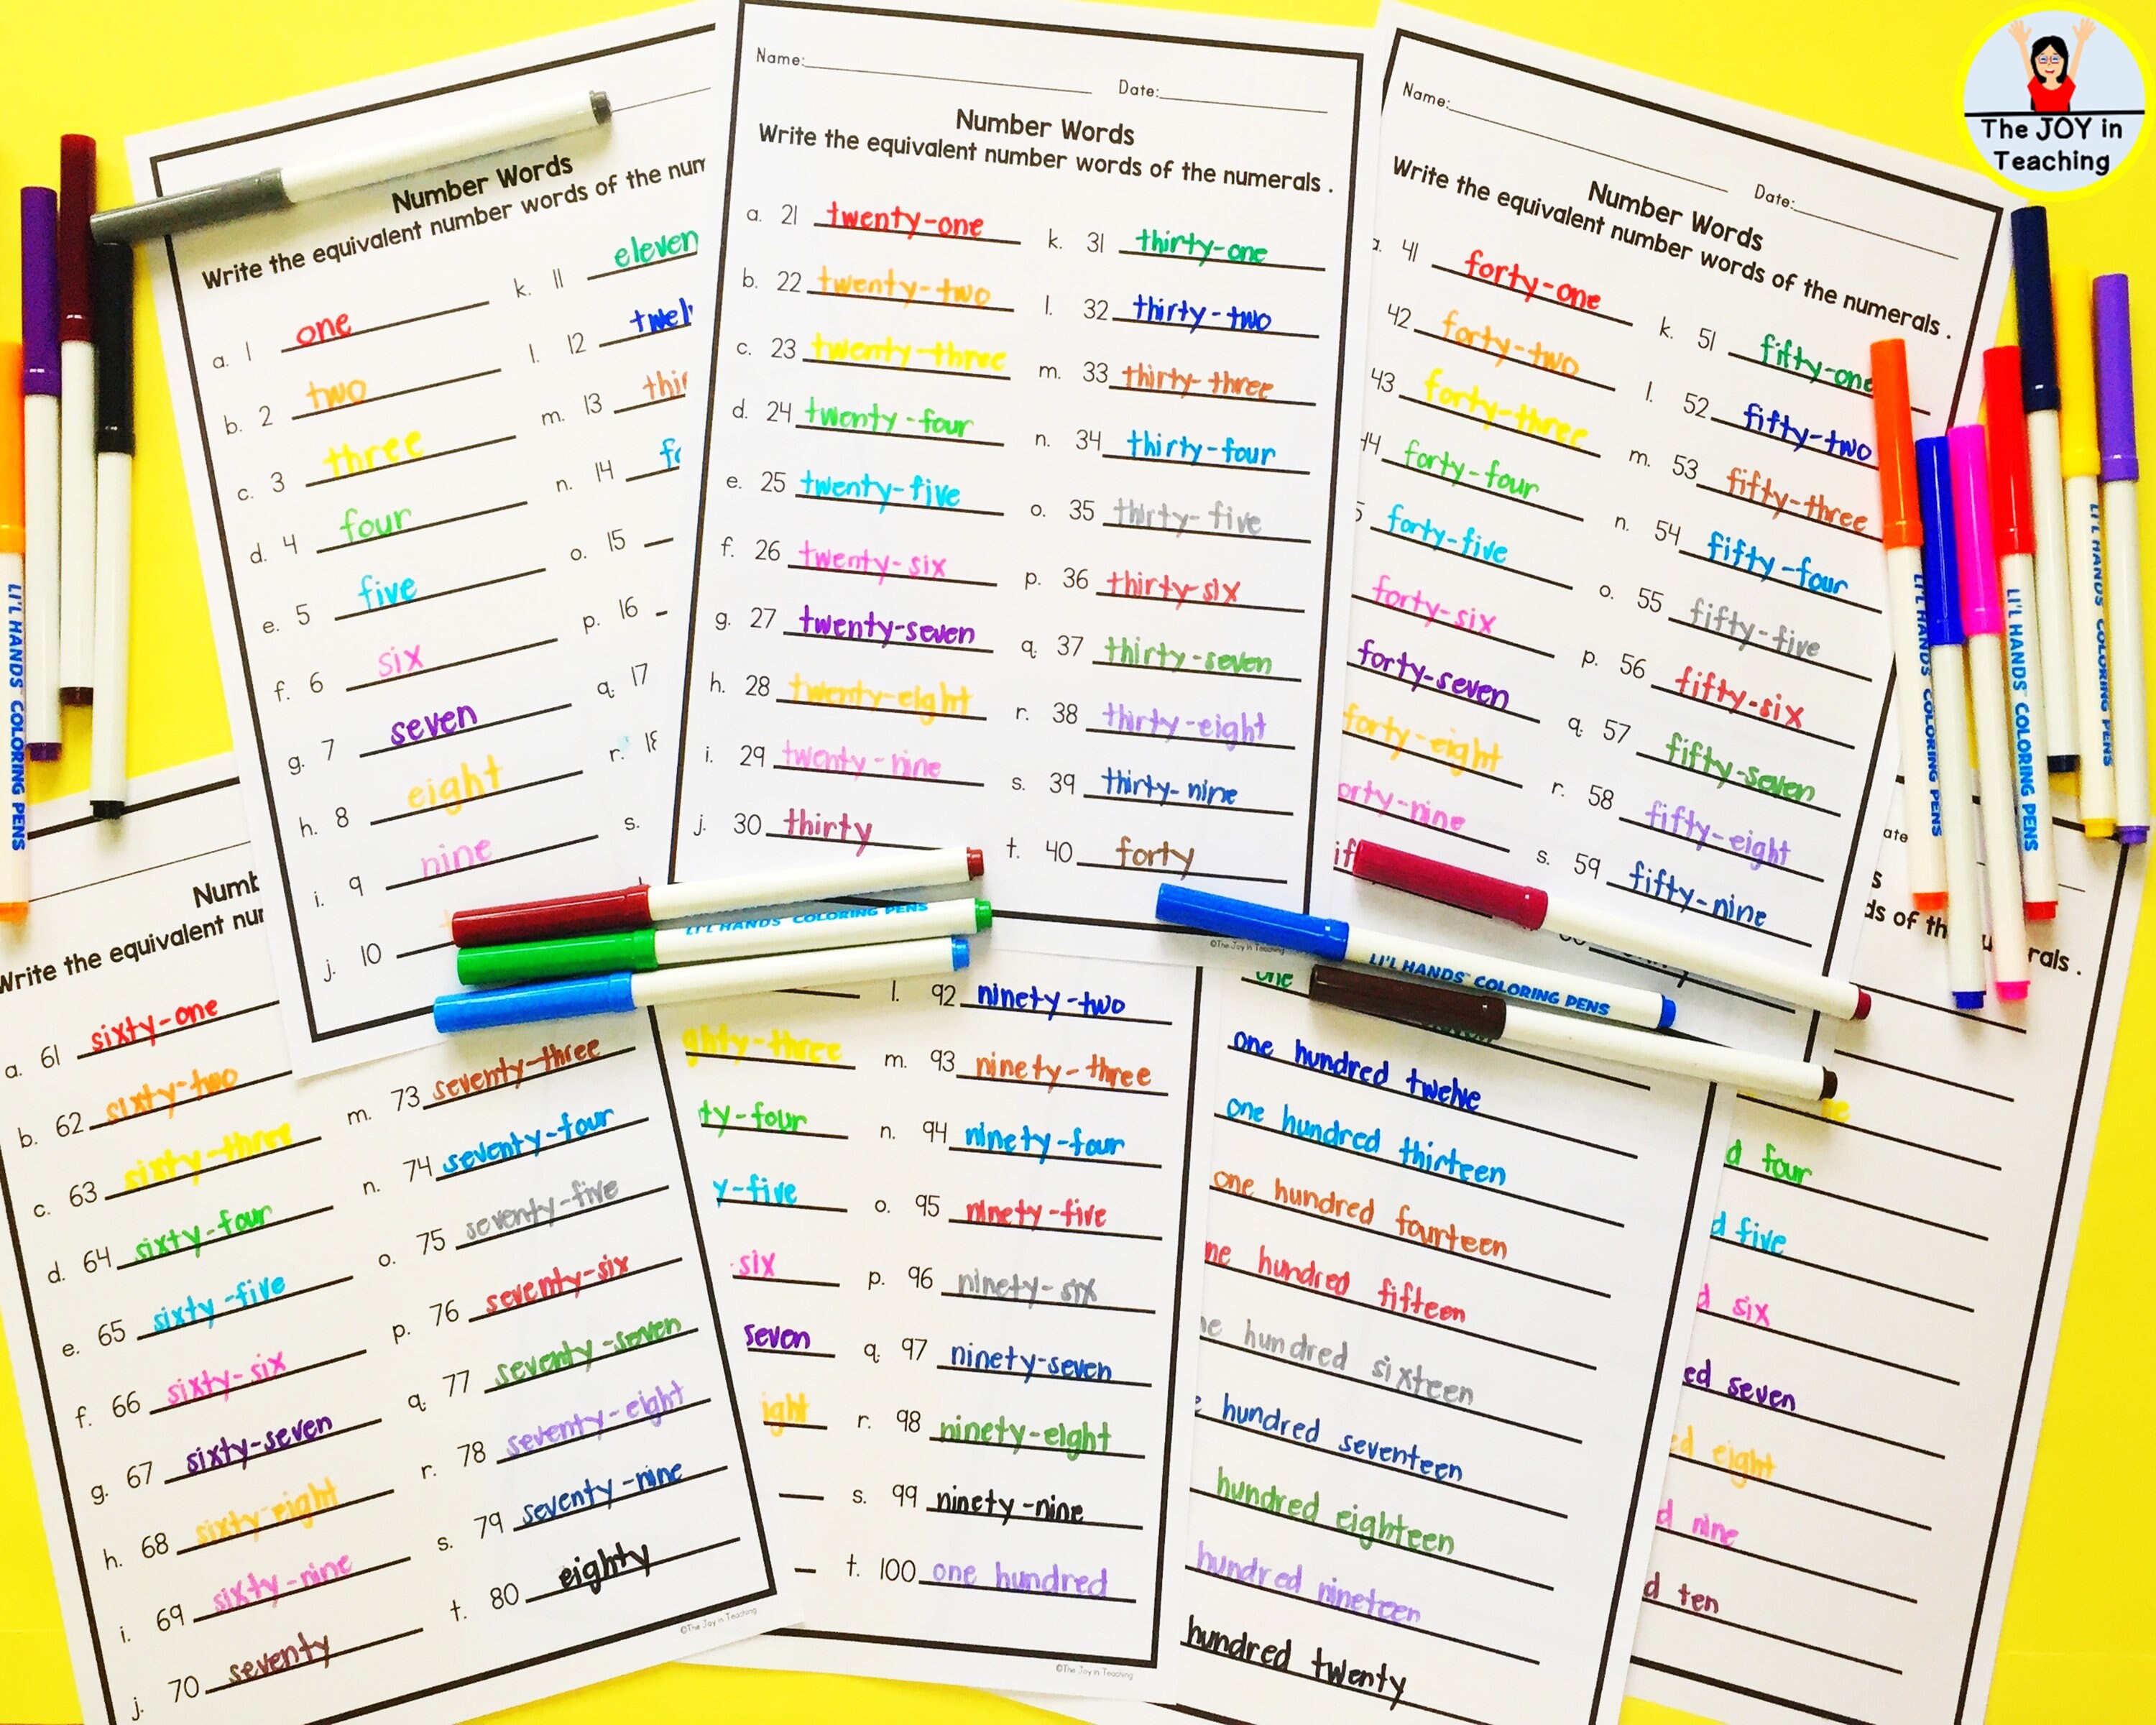 The JOY in
Teaching
Number Words
Write the equivalent number words of the
a. 1 one
b. 2 two
c. 3 three
d. 4 four
e. 5 five
f. 6 six
g. 7 seven
h. 8 eight
i. 9 nine
j. 10
k. 11 eleven
l. 12
m. 13
n. 14
o. 15
p. 16
q. 17
r.
s.
Name: Date:
Number Words
Write the equivalent number words of the numerals .
a. 21 twenty-one
b. 22 twenty-two
c. 23 twenty-three
d. 24 twenty-four
e. 25 twenty-five
f. 26 twenty-six
g. 27 twenty-seven
h. 28 twenty-eight
i. 29 twenty-nine
j. 30 thirty
k. 31 thirty-one
l. 32 thirty-two
m. 33 thirty-three
n. 34 thirty-four
o. 35 thirty-five
p. 36 thirty-six
q. 37 thirty-seven
r. 38 thirty-eight
s. 39 thirty-nine
t. 40 forty
©The Joy in Teaching
Name: Date:
Number Words
Write the equivalent number words of the numerals .
41 forty-one
42 forty-two
43 forty-three
forty-four
forty-five
forty-six
forty-seven
forty-eight
k. 51 fifty-one
l. 52 fifty-two
m. 53 fifty-three
n. 54 fifty-four
o. 55 fifty-five
p. 56 fifty-six
q. 57 fifty-seven
r. 58 fifty-eight
s. 59 fifty-nine
Write the equivalent
a. 61 sixty-one
b. 62 sixty-two
c. 63 sixty-three
d. 64 sixty-four
e. 65 sixty-five
f. 66 sixty-six
g. 67 sixty-seven
h. 68 sixty-eight
i. 69 sixty-nine
j. 70 seventy
m. 73 seventy-three
n. 74 seventy-four
o. 75 seventy-five
p. 76 seventy-six
q. 77 seventy-seven
r. 78 seventy-eight
s. 79 seventy-nine
t. 80 eighty
©The Joy in Teaching
ghty-three
ty-four
y-five
six
seven
ight
l. 92 ninety-two
m. 93 ninety-three
n. 94 ninety-four
o. 95 ninety-five
p. 96 ninety-six
q. 97 ninety-seven
r. 98 ninety-eight
s. 99 ninety-nine
t. 100 one hundred
©The Joy in Teaching
one
one hundred twelve
one hundred thirteen
one hundred fourteen
ne hundred fifteen
ne hundred sixteen
hundred seventeen
hundred eighteen
hundred nineteen
hundred twenty
ds of the
d four
d five
d six
ed seven
ed eight
d nine
d ten
LI'L HANDS COLORING PENS
LI'L HANDS COLORING PENS
LI'L HANDS COLORING PENS
LI'L HANDS COLORING PENS
LI'L HANDS COLORING PENS
LI'L HANDS COLORING PENS